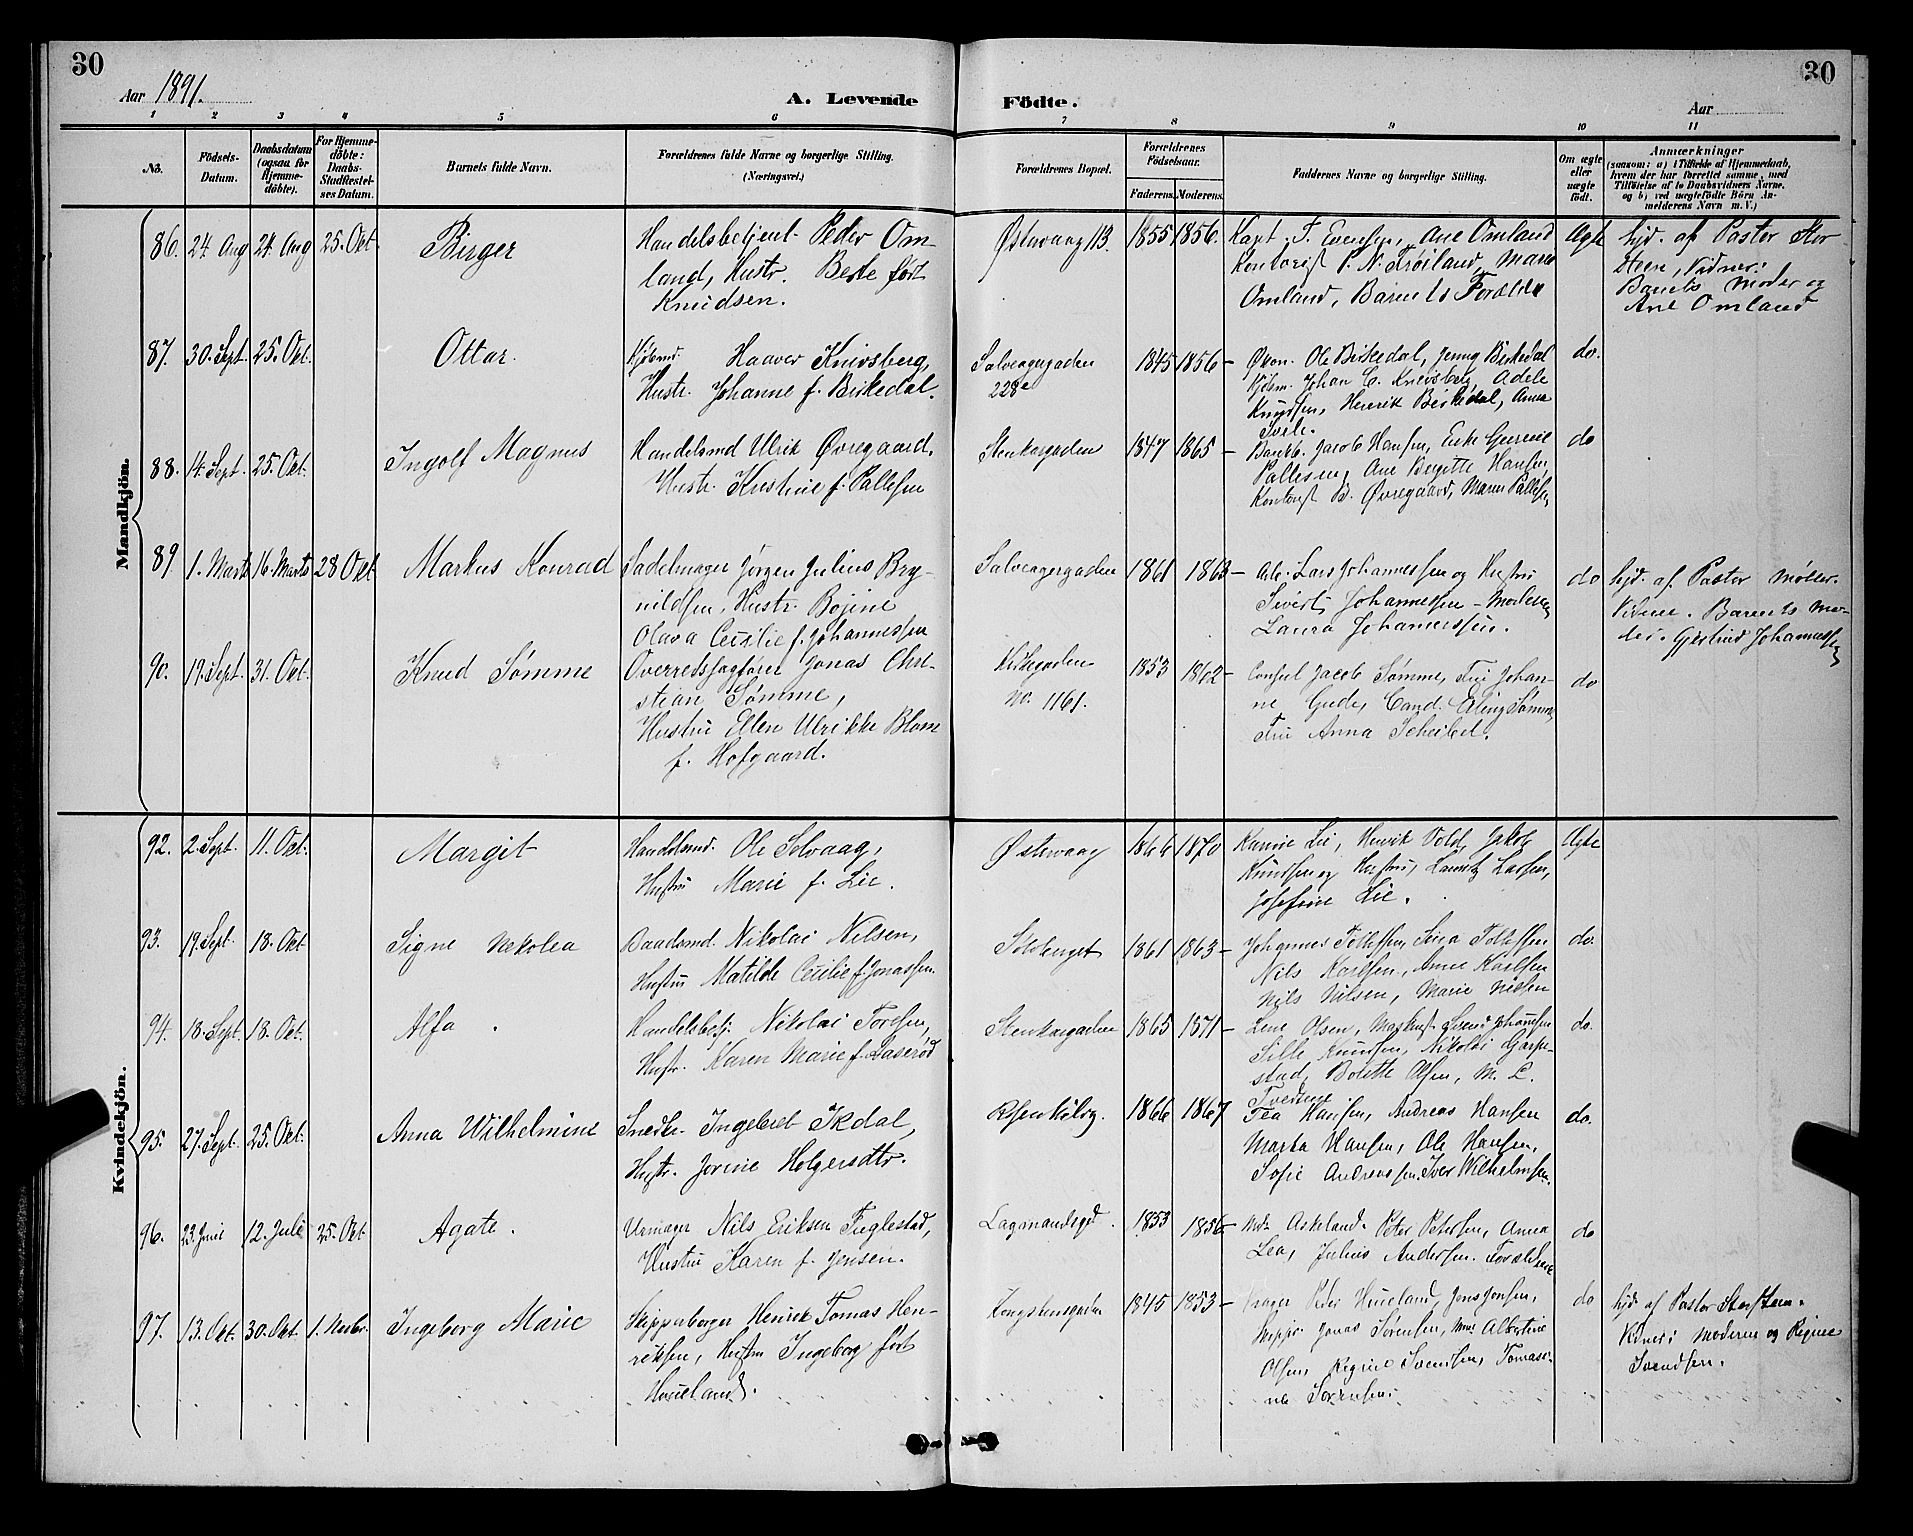 30
Aar 1891.
A. Levende
Födte.
Aar
30
1 2 3 4 5 6 7 8 9 10 11
No.
Födsels-Datum.
Daabsdatum (ogsaa for Hjemmedöbte).
For Hjemmedöbte: Daabs-Stadfæstelses Datum.
Barnets fulde Navn.
Forældrenes fulde Navne og borgerlige Stilling. (Næringsvei.)
Forældrenes Bopæl.
Forældrenes Födselsaar.
Faderens. Moderens.
Faddernes Navne og borgerlige Stilling.
Om ægte eller uægte födt.
Anmærkninger
(saasom: a) i Tilfælde af Hjemmedaab, hvem der har forrettet samme, med Tilföielse af to Daabsvidners Navne, og b) ved uægtefödte Börn Anmelderens Navn m. V.)
Mandkjön.
86. 24 Aug 24 Aug 25. Okt. Birger
Handelsbetjent Peder Om-
land, Hustr. Berte født
Knudsen.
Østervaag 113. 1855 1856.
Kapt. T. Evensen, Ane Omland
Kontorist P. N. Trøiland, Marie
Omland, Barnets Forældre
Ægte
hjd. af Pastor Stor
Steen, Vidner:
Barnets Moder og
Ane Omland
87. 30. Sept. 25. Okt. Ottar.
Kjøbmd. Haaver Knivsberg,
Hustr. Johanne f. Birkedal.
Salvagergaden
228e
1845 1856
Økon. Ole Birkedal, Jenny Birkedal
Kjøbm. Johan C. Knivsberg, Adele
Knudsen, Henrik Birkedal, Anna
do.
88. 14. Sept. 25. Okt. Ingolf Magnus
Handelsmd Ulrik Øvregaard,
Hustr. Kristine f. Pallesen
Stenkargaden 1847 1865
Jacob Hansen, Enke
Pallesen, Ane Birgitte Hansen,
Kontorist Øvregaard, Maren Pallesen
do
89 1. Marts 16. Marts 28 Okt Markus Konrad
Sadelmager Jørgen Julius Bry-
nildsen, Hustr. Bojine
Olava Cecilie f. Johannessen
Salvagergaden 1861 1863
Arb. Lars Johannessen og Hustru
Sivert Johannessen – Moderen
Laura Johannessen.
do
hjd. af Pastor Møller.
Vidner. Barnets Mo-
der. Gjertrud Johannessen
90. 19. Sept. 31. Okt. Knud Sømme
Overretssagfører Jonas Chri-
stian Sømme,
Hustru Ellen Ulrikke Blom
f. Hofgaard.
Kirkegaden
No. 1161.
1853 1862
Consul Jacob Sømme, Fru Johan-
ne Gude, Cand. Erling Sømme
Fru Anna Scheibel.
do
Kvindekjön.
92. 2. Sept. 11. Okt. Margit
Handelsmd. Ole Selvaag,
Hustru Marie f. Lie.
Østervaag 1866 1870
Karine Lie, Henrik Vold, Jakob
Knudsen og Hustru, Lauritz Larsen,
Josefine Lie.
Ægte
93. 19. Sept. 18. Okt Signe Nikolea
Baadsmd. Nikolai Nilsen,
Hustru Matilde Cecilie f. Jonassen
1861 1863
Johannes Tollefsen, Sina Tollefsen
Nils Karlsen, Anne Karlsen
Nils Nilsen, Marie Nilsen
do.
94. 18. Sept 18. Okt. Alfa
Handelsbetj. Nikolai Toresen,
Hustr. Karen Marie f. Aaserød
Stenkargaden 1865 1871
Lene Olsen, Maskinst Johansen
Sille Knudsen, Nikolai Garpe-
stad, Bolette Olsen, M. L.
Tvedene
do.
95. 27. Sept 25. Okt. Anna Wilhelmine
Snedk. Ingebret Ikdal,
Hustr. Jorine Holgersdtr.
Rosenkilvg. 1866 1867
Tea Hansen, Andreas Hansen
Marta Hansen, Ole Hansen,
Sofie Andreassen, Iver Wilhelmsen.
do.
96. 23. Juni 12. Juli 25. Okt Agate.
Urmager Nils Eriksen Fuglestad,
Hustru Karen f. Jensen.
Lagmandsgd. 1853 1856
Askeland. Peter Petersen, Anna
Lea, Julius Andersen. Forældrene
do
97. 13. Okt. 30. Okt. 1. Novbr. Ingeborg Marie
Skipperborger Henrik Tomas Hen-
riksen, Hustru Ingeborg født
Hueland.
Kongstensgaden 1845 1853
Peder Hueland, Jens Jensen,
Jonas Sørensen, Albertine
Olsen, Regine Svendsen, Tomasi-
ne Sørensen.
do
hjd. af Pastor Storsteen.
Vidner: Moderen og Regine
Svendsen.